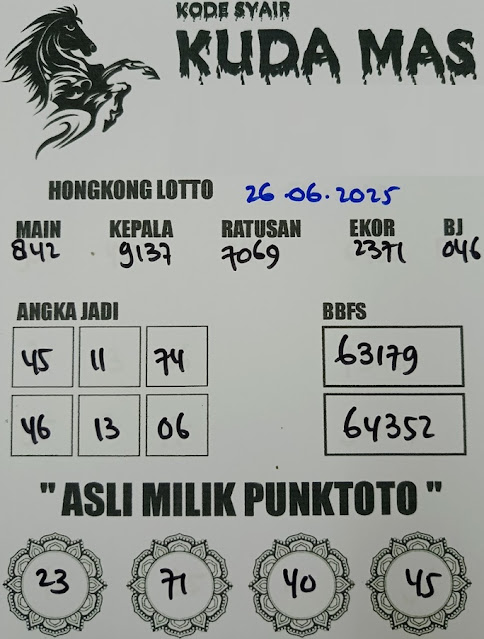 KODE SYAIR
KUDA MAS
HONGKONG LOTTO 26.06.2025
MAIN KEPALA RATUSAN EKOR BJ
842 9137 7069 2371 046
ANGKA JADI BBFS
45 11 74 63179
46 13 06 64352
" ASLI MILIK PUNKTOTO "
23 71 40 45